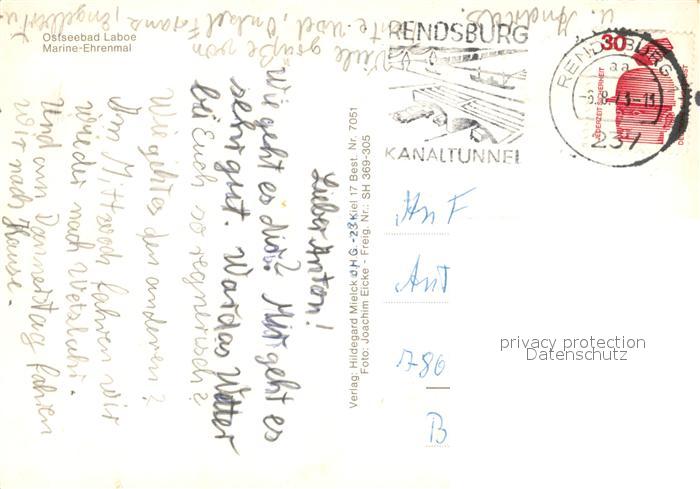 Ostseebad Laboe
Marine-Ehrenmal
Lieber Anton!
Wie geht es dir? Mir geht es
sehr gut. War das Wetter
bei Euch so regnerisch?
Wie geht es den anderen?
Am Mittwoch fahren wir
wieder nach
Und am Donnerstag fahren
wir nach Hause.
Viele Grüße von
Onkel
Engelbert
u. Andreas.
Verlag: Hildegard Mielck oHG. - 23 Kiel 17 Best. Nr. 7051
Foto: Joachim Eicke - Freig. Nr.: SH 369-305
RENDSBURG
KANALTUNNEL
RENDSBURG 1
aa
237
30
JEDERZEIT SICHERHEIT
An F
Ant
786
B
privacy protection
Datenschutz